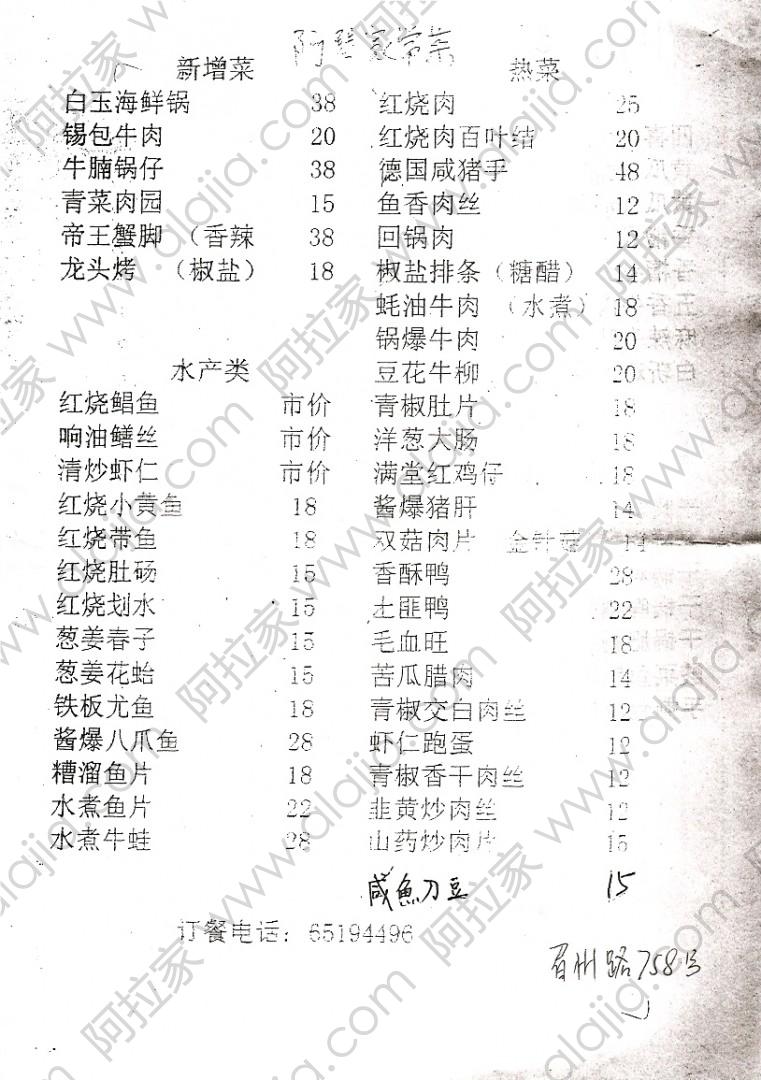 阿琴家常菜
新增菜
白玉海鲜锅 38
锡包牛肉 20
牛腩锅仔 38
青菜肉园 15
帝王蟹脚 （香辣 38
龙头烤 （椒盐） 18
水产类
红烧鲳鱼 市价
响油鳝丝 市价
清炒虾仁 市价
红烧小黄鱼 18
红烧带鱼 18
红烧肚砀 15
红烧划水 15
葱姜春子 15
葱姜花蛤 15
铁板尤鱼 18
酱爆八爪鱼 28
糟溜鱼片 18
水煮鱼片 22
水煮牛蛙 28
热菜
红烧肉 25
红烧肉百叶结 20
德国咸猪手 48
鱼香肉丝 12
回锅肉 12
椒盐排条（糖醋） 14
蚝油牛肉 （水煮） 18
锅爆牛肉 20
豆花牛柳 20
青椒肚片 18
洋葱大肠 18
满堂红鸡仔 18
酱爆猪肝 14
双菇肉片 金针菇 14
香酥鸭 28
土匪鸭 22
毛血旺 18
苦瓜腊肉 14
青椒交白肉丝 12
虾仁跑蛋 12
青椒香干肉丝 12
韭黄炒肉丝 12
山药炒肉片 15
咸魚刀豆 15
订餐电话：65194496
眉州路758号
阿拉家 www.alajia.com